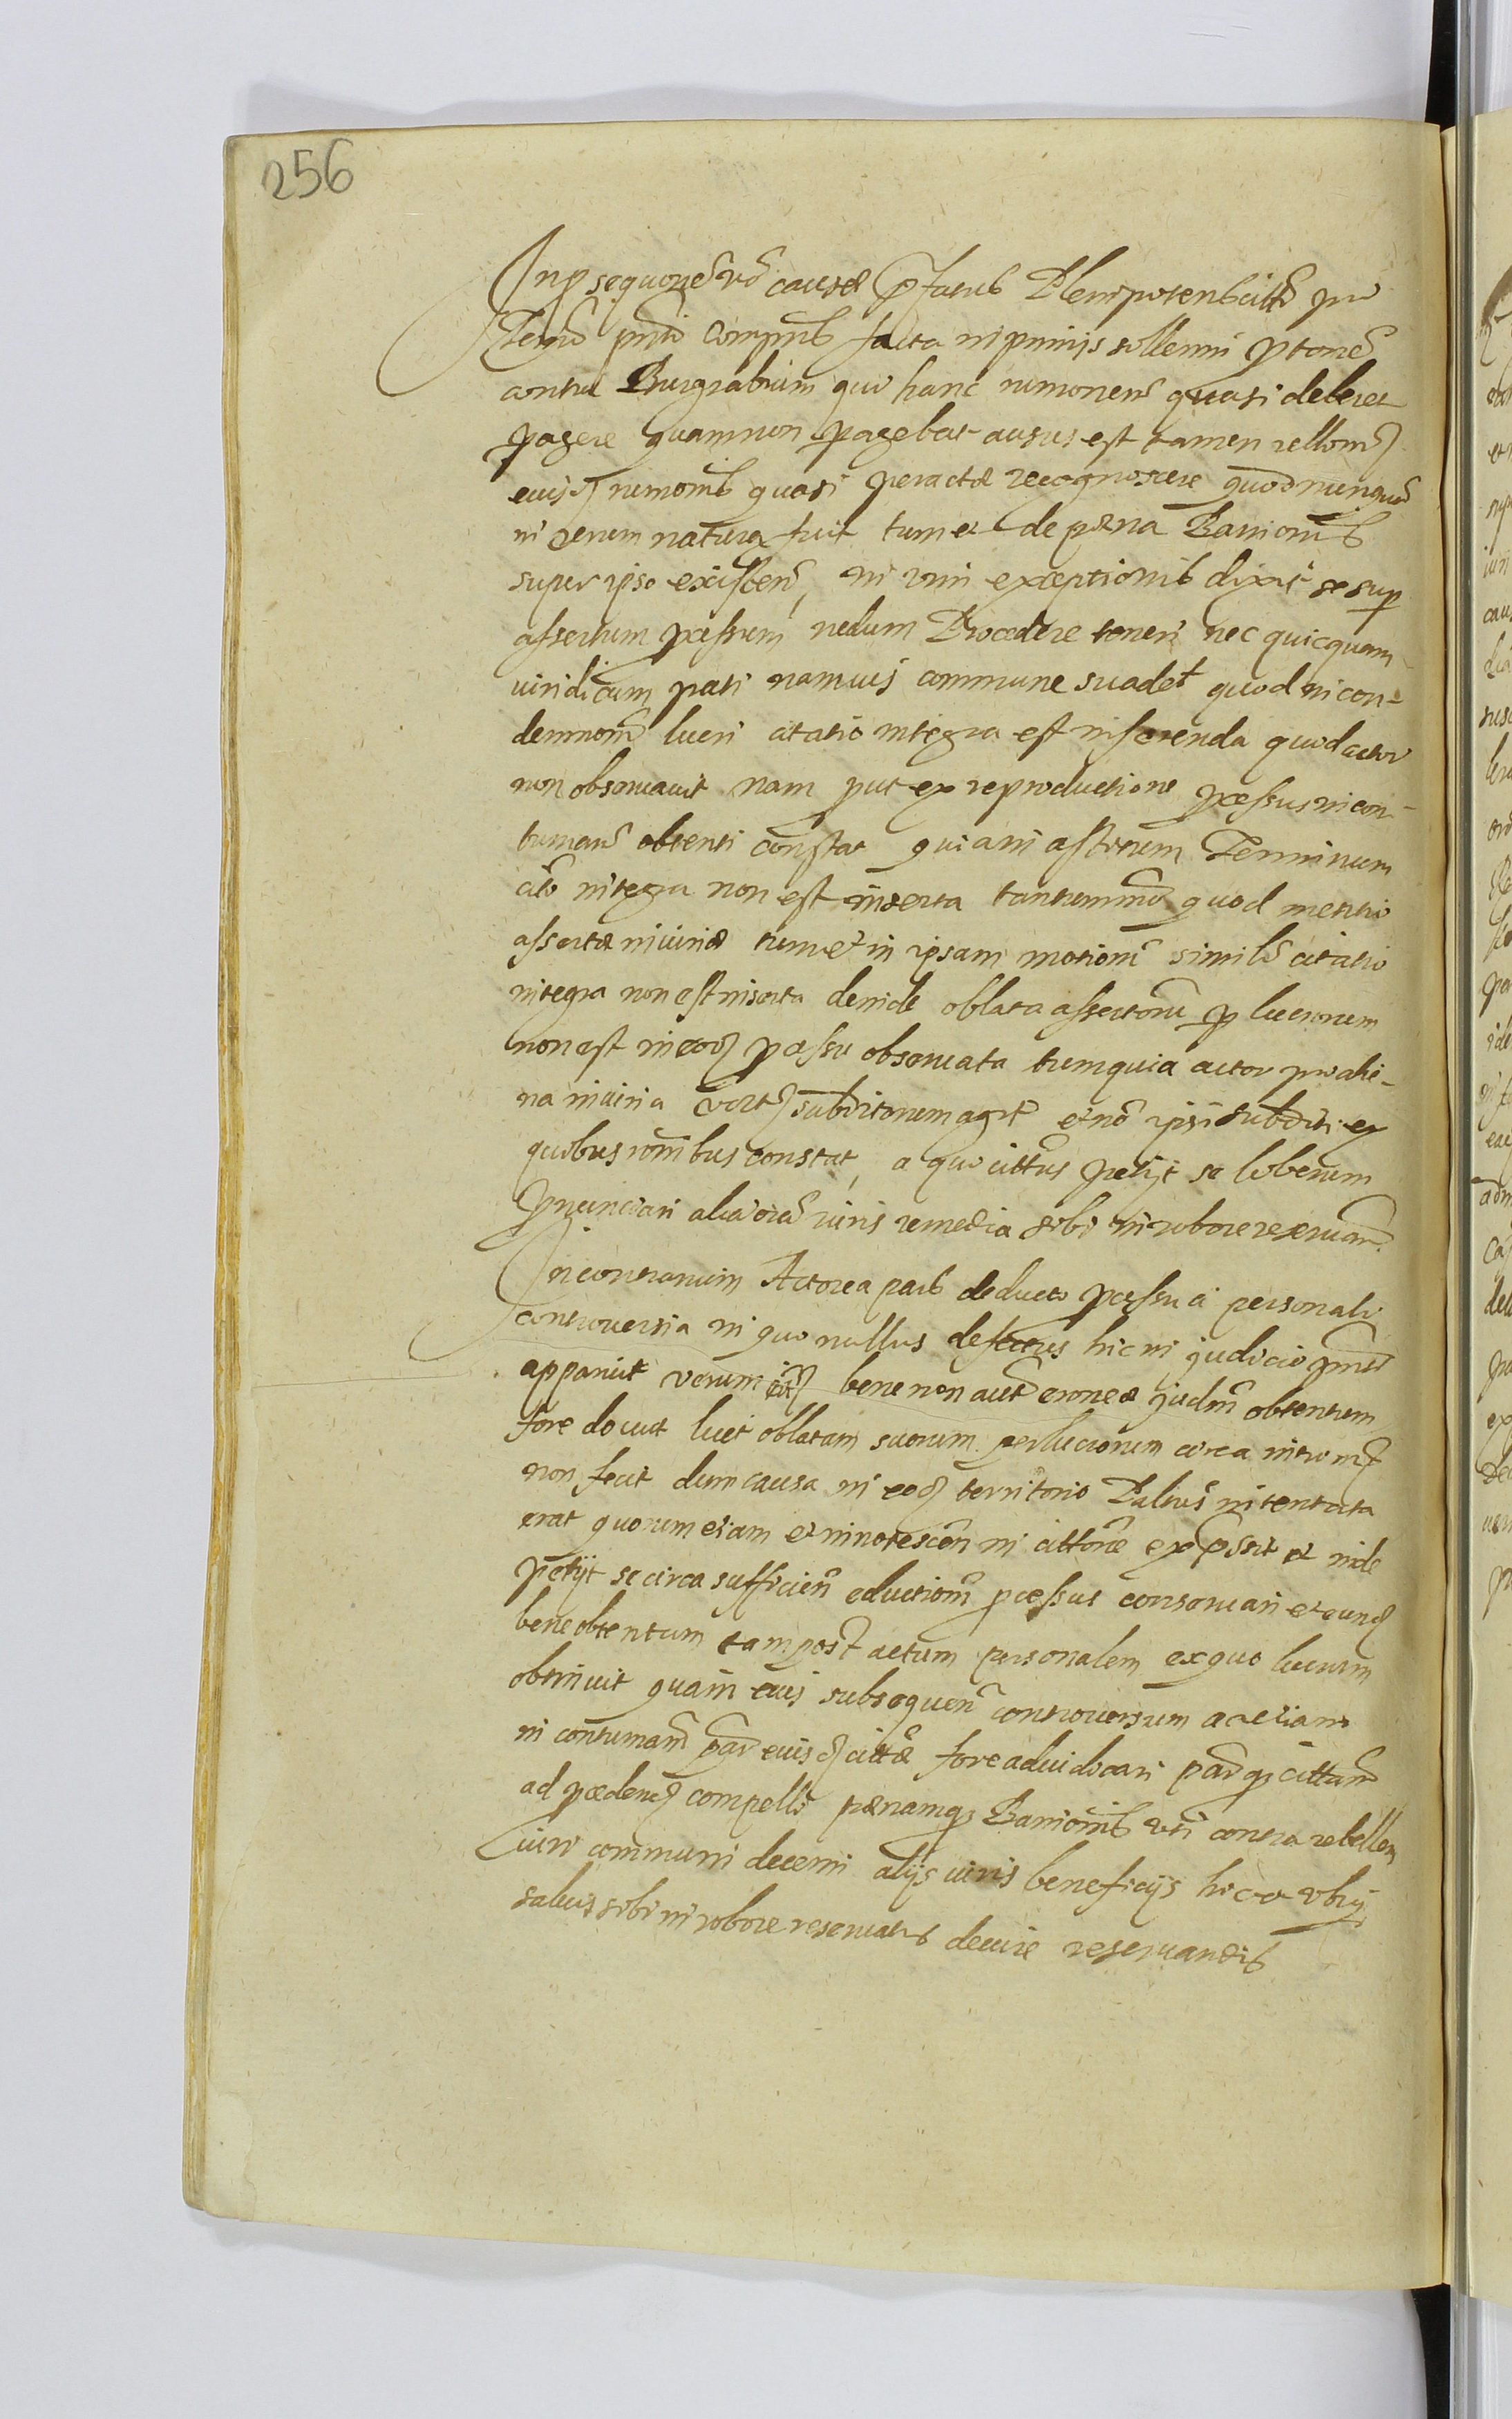 256
In psequone vo causæ pfatus Plenipotens citti pro
Termo pnti Comprns facta inprimis sollenni ptone
contra Burgrabium qui hanc rumonem quasi deberet
pagere quam non pagebat ausus est tamen rellom
eiusd rumonis quasi peractæ recognoscere quod nunquam
in rerum natura fuit tum et de pæna Bannionis
super ipso existen, in vim exceptionis dixit se sup
assertum pcessum nedum Procedere teneri nec quicquam
iuridicum pati nam ius commune suadet quod in con-
demnom lucri citatio integra est inserenda quod actor
non obseruauit nam put ex reproductione pcessus in con-
tumam obtenti constat quia in astitum Terminum
cito integra non est inserta tantummo quod mentio
assertæ iniuriæ tum et in ipsam motionem simile citatio
integra non est inserta deinde oblata assertoru p lucrorum
non est in eod pcessu obseruata tum quia actor pro alie-
na iniuria vort subditorum agit et no ipsi subditi ex
quibus ronibus constat, a quo cittus petijt se liberum
pnunciari alia oia iuris remedia sibi in robore reseruan.
In contrarium Actorea pars deducto pcessu a personali
controuersia in quo nullus defectus hic in judicio pnti
apparuit verum eund bene non aut erroneæ judm obtentum
fore docuit licet oblatam suorum perlucrorum circa introm
non fecit dum causa in eod territorio Palus intentata
erat quorum etiam et innotescen in cittone expssit et inde
petijt se circa sufficien eductionem pcessus conseruari et eund
bene obtentum tam post actum personalem ex quo lucrum
obtinuit quam eius subsequen controuersum ac etiam
in contumam par eiusd cittæ fore adiudicari parq cittam
ad pcedend compelli pænamq Bannionis uti contra rebellem
iuri communi decerni alijs iuris beneficijs hic et vbiq
saluis sibi in robore reseruatis de iure reseruandis